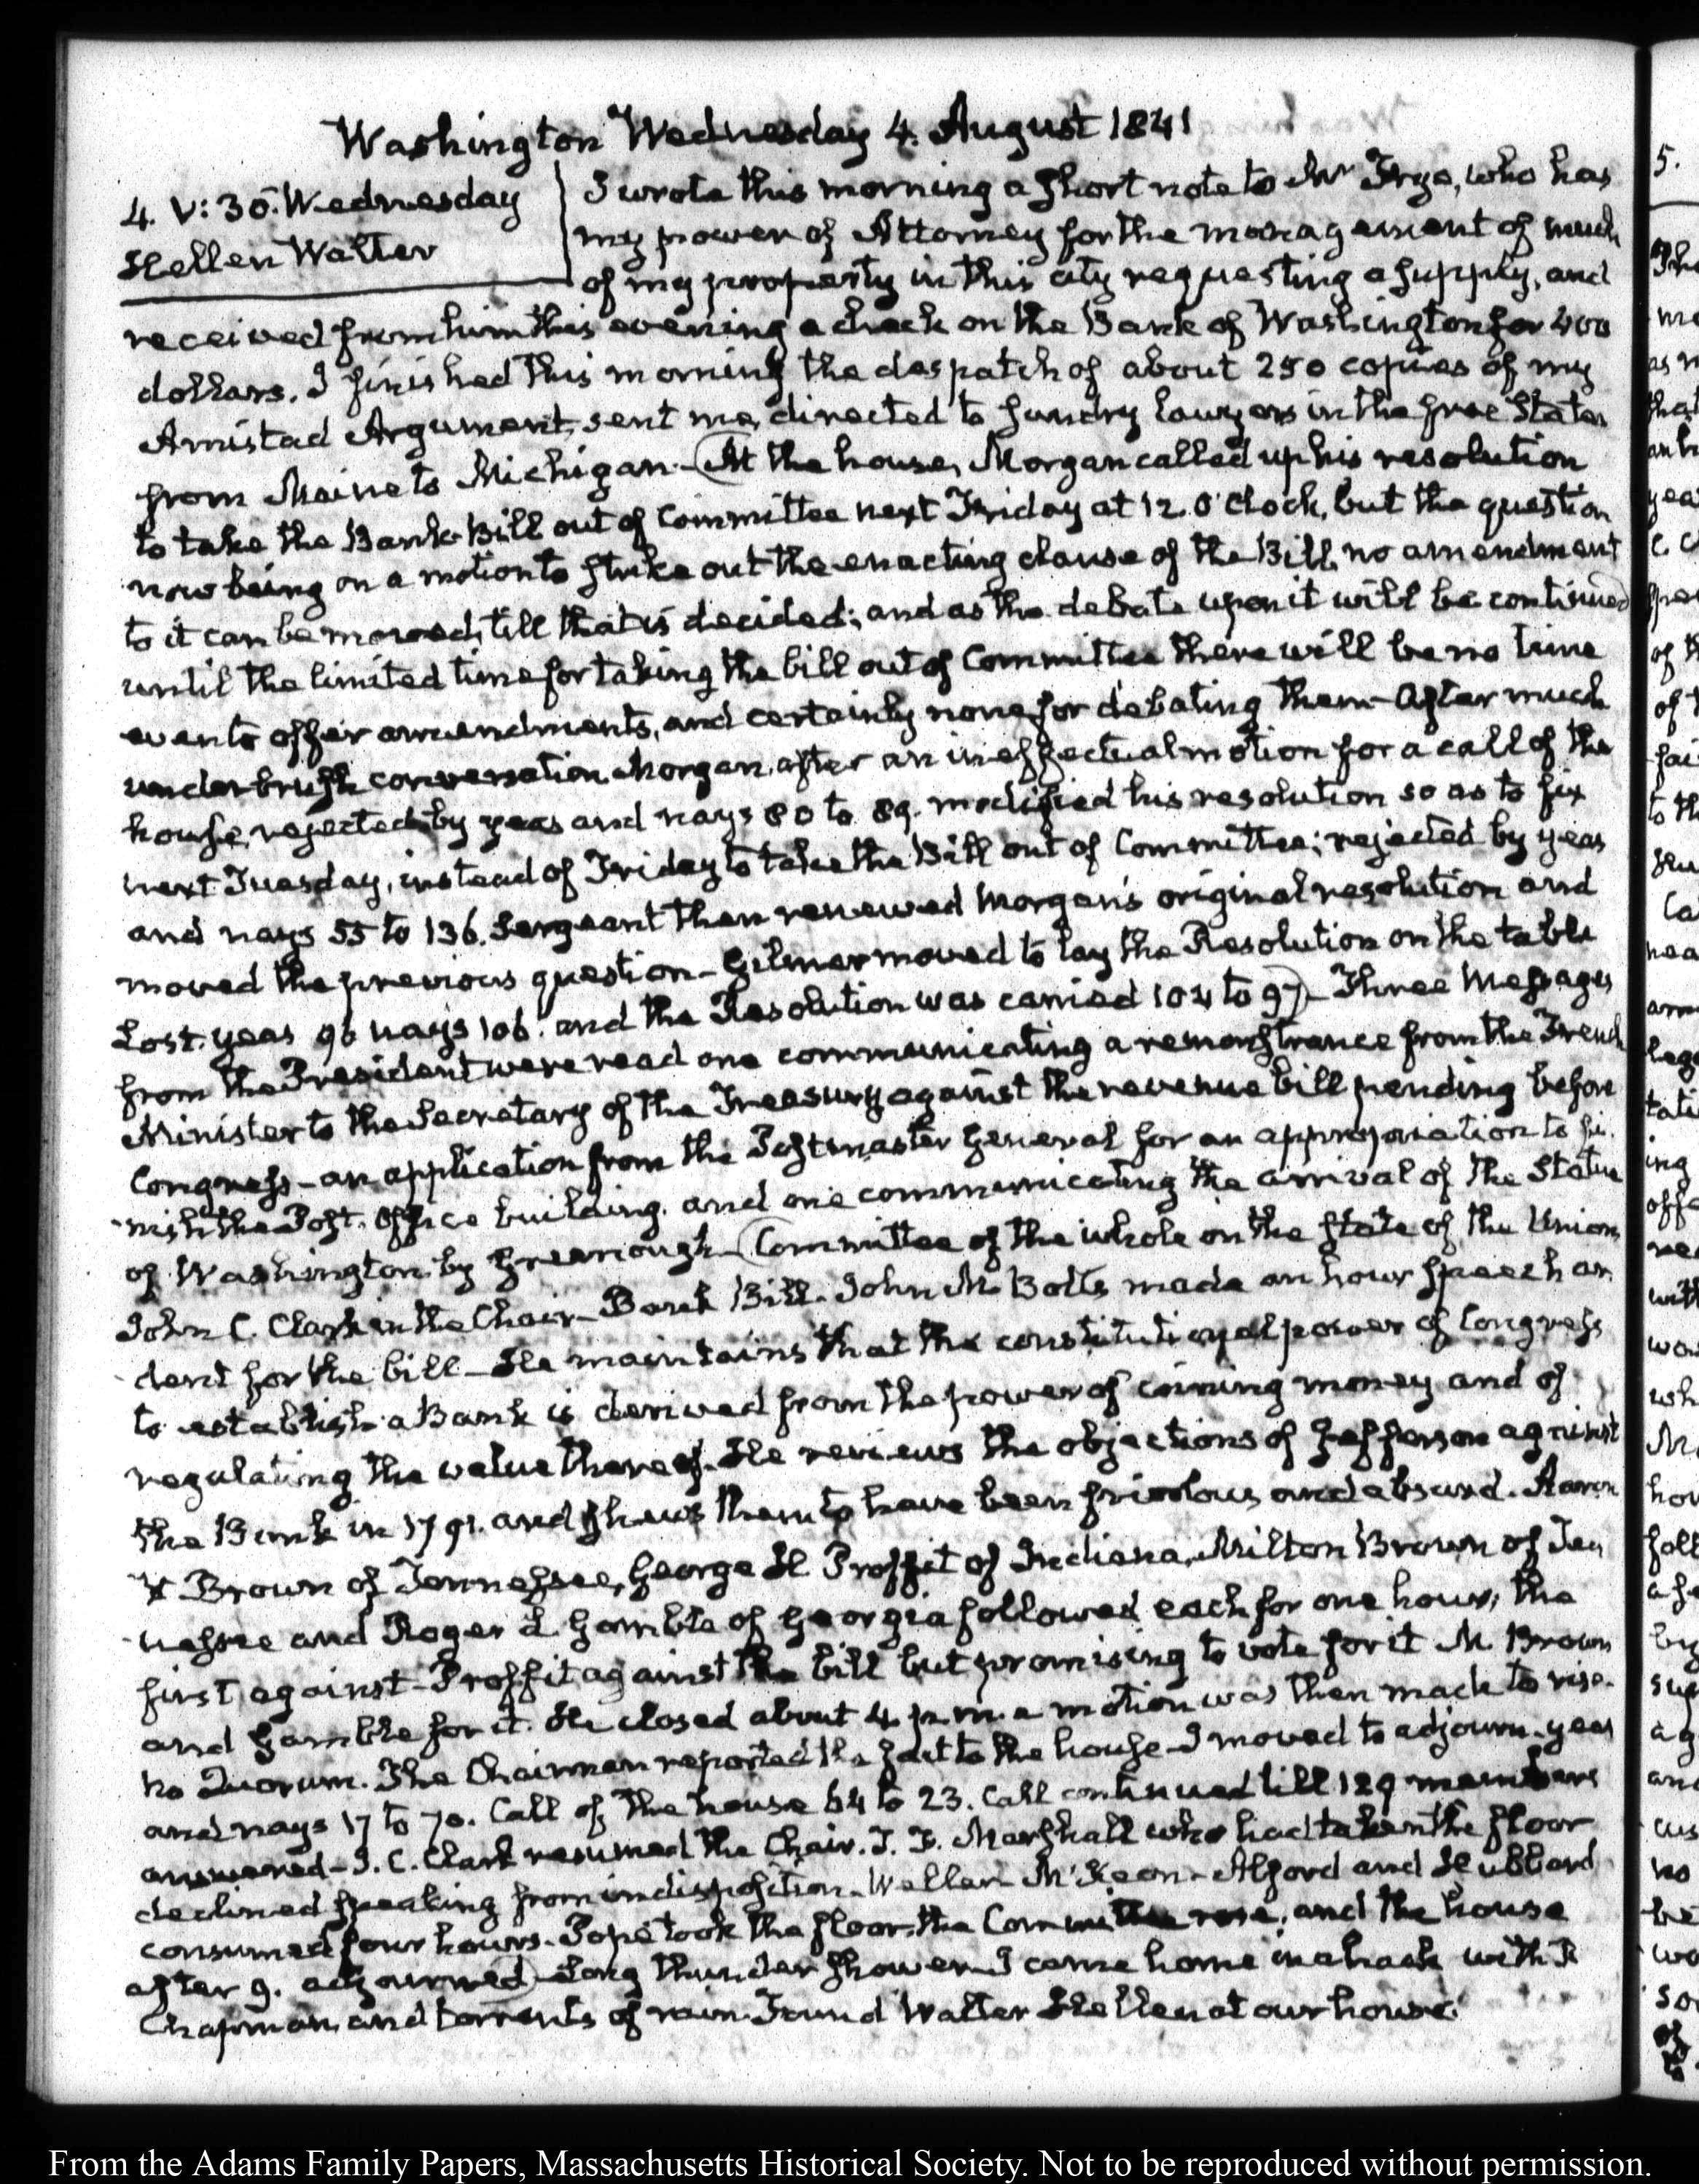 Washington Wednesday 4. August 1841
4. V:30. Wednesday
Hellen Walter
I wrote this morning a short note to Mr Frye, who has
my power of Attorney for the management of much
of my property in this city requesting a supply, and
received from him this evening a check on the Bank of Washington for 400
dollars. I finished this morning the despatch of about 250 copies of my
Amistad Argument, sent me, directed to sundry lawyers in the free States
from Maine to Michigan. (At the house, Morgan called up his resolution
to take the Bank Bill out of Committee next Friday at 12. O'Clock, but the question
now being on a motion to strike out the enacting clause of the Bill, no amendment
to it can be moved, till that is decided; and as the debate upon it will be continued
until the limited time for taking the bill out of Committee there will be no time
even to offer amendments, and certainly none for debating them—After much
underbrush conversation Morgan, after an ineffectual motion for a call of the
house, rejected by yeas and nays 80 to 89. modified his resolution so as to fix
next Tuesday, instead of Friday to take the Bill out of Committee; rejected by yeas
and nays 55 to 136. Sergeant then renewed Morgan's original resolution and
moved the previous question—Gilmer moved to lay the Resolution on the table
Lost. yeas 96 nays 106. and the Resolution was carried 104 to 97)—Three Messages
from the President were read one communicating a remonstrance from the French
Minister to the Secretary of the Treasury against the revenue bill pending before
Congress—an application from the Postmaster General for an appropriation to fi-
nish the Post-Office building. and one communicating the arrival of the Statue
of Washington by Greenough—(Committee of the whole on the state of the Union,
John C. Clark in the Chair—Bank Bill. John M. Botts made an hour speech ar-
dent for the bill—He maintains that the constitutional power of Congress
to establish a Bank is derived from the power of coining money and of
regulating the value thereof. He reviews the objections of Jefferson against
the Bank in 1791. and shews them to have been frivolous and absurd. Aaron
V Brown of Tennessee, George H Proffit of Indiana, Milton Brown of Ten
nessee and Roger L Gamble of Georgia followed each for one hour, the
first against—Proffit against the bill but promising to vote for it M. Brown
and Gamble for it. He closed about 4. p.m. a motion was then made to rise.
no Quorum. The Chairman reported the fact to the house—I moved to adjourn. yeas
and nays 17 to 70. Call of the house 64 to 23. Call continued till 129 members
answered—J. C. Clark resumed the Chair. T. F. Marshall who had taken the floor
declined speaking from indisposition—Weller—McKeon—Alford and Hubbard
consumed four hours. Pope took the floor, the Committee rose, and the house
after 9. adjourned)—Long thunder shower—I came home in a hack with R
Chapman, and torrents of rain. Found Walter Hellen at our house.
From the Adams Family Papers, Massachusetts Historical Society. Not to be reproduced without permission.